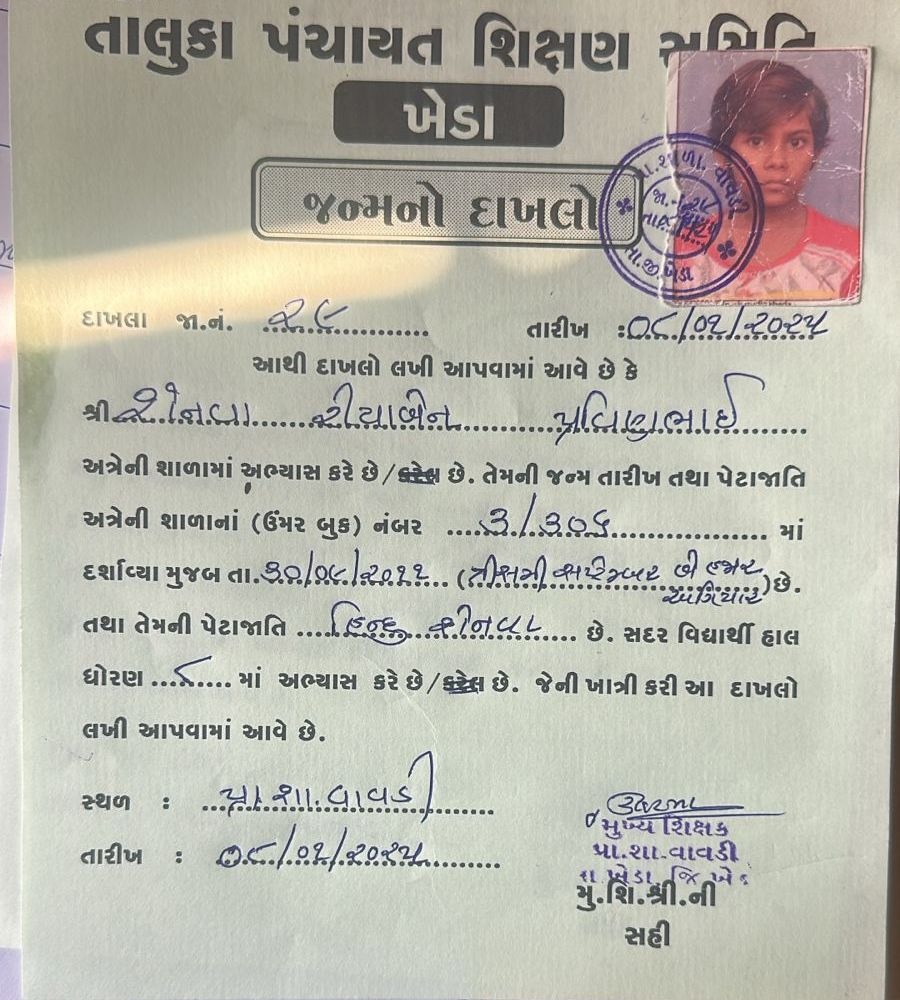 તાલુકા પંચાયત શિક્ષણ સમિતિ
ખેડા
જન્મનો દાખલો
પ્રા.શાળા. વાવડી
તા.જી.ખેડા
દાખલા જા.નં. ૨૯ તારીખ :૦૮/૦૧/૨૦૨૫
આથી દાખલો લખી આપવામાં આવે છે કે
શ્રી શેનવા રીયાબેન પ્રવિણભાઈ
અત્રેની શાળામાં અભ્યાસ કરે છે/કરેલ છે. તેમની જન્મ તારીખ તથા પેટાજાતિ
અત્રેની શાળાનાં (ઉંમર બુક) નંબર ૩/૩૦૬ માં
દર્શાવ્યા મુજબ તા. ૩૦/૦૯/૨૦૧૧ (ત્રીસમી સપ્ટેમ્બર બે હજાર
અગિયાર) છે.
તથા તેમની પેટાજાતિ હિન્દુ શેનવા છે. સદર વિદ્યાર્થી હાલ
ધોરણ ૮ માં અભ્યાસ કરે છે/કરેલ છે. જેની ખાત્રી કરી આ દાખલો
લખી આપવામાં આવે છે.
સ્થળ : પ્રા.શા.વાવડી
તારીખ : ૦૮/૦૧/૨૦૨૫
મુખ્ય શિક્ષક
પ્રા.શા.વાવડી
તા.ખેડા, જિ.ખેડા
મુ.શિ.શ્રી.ની
સહી